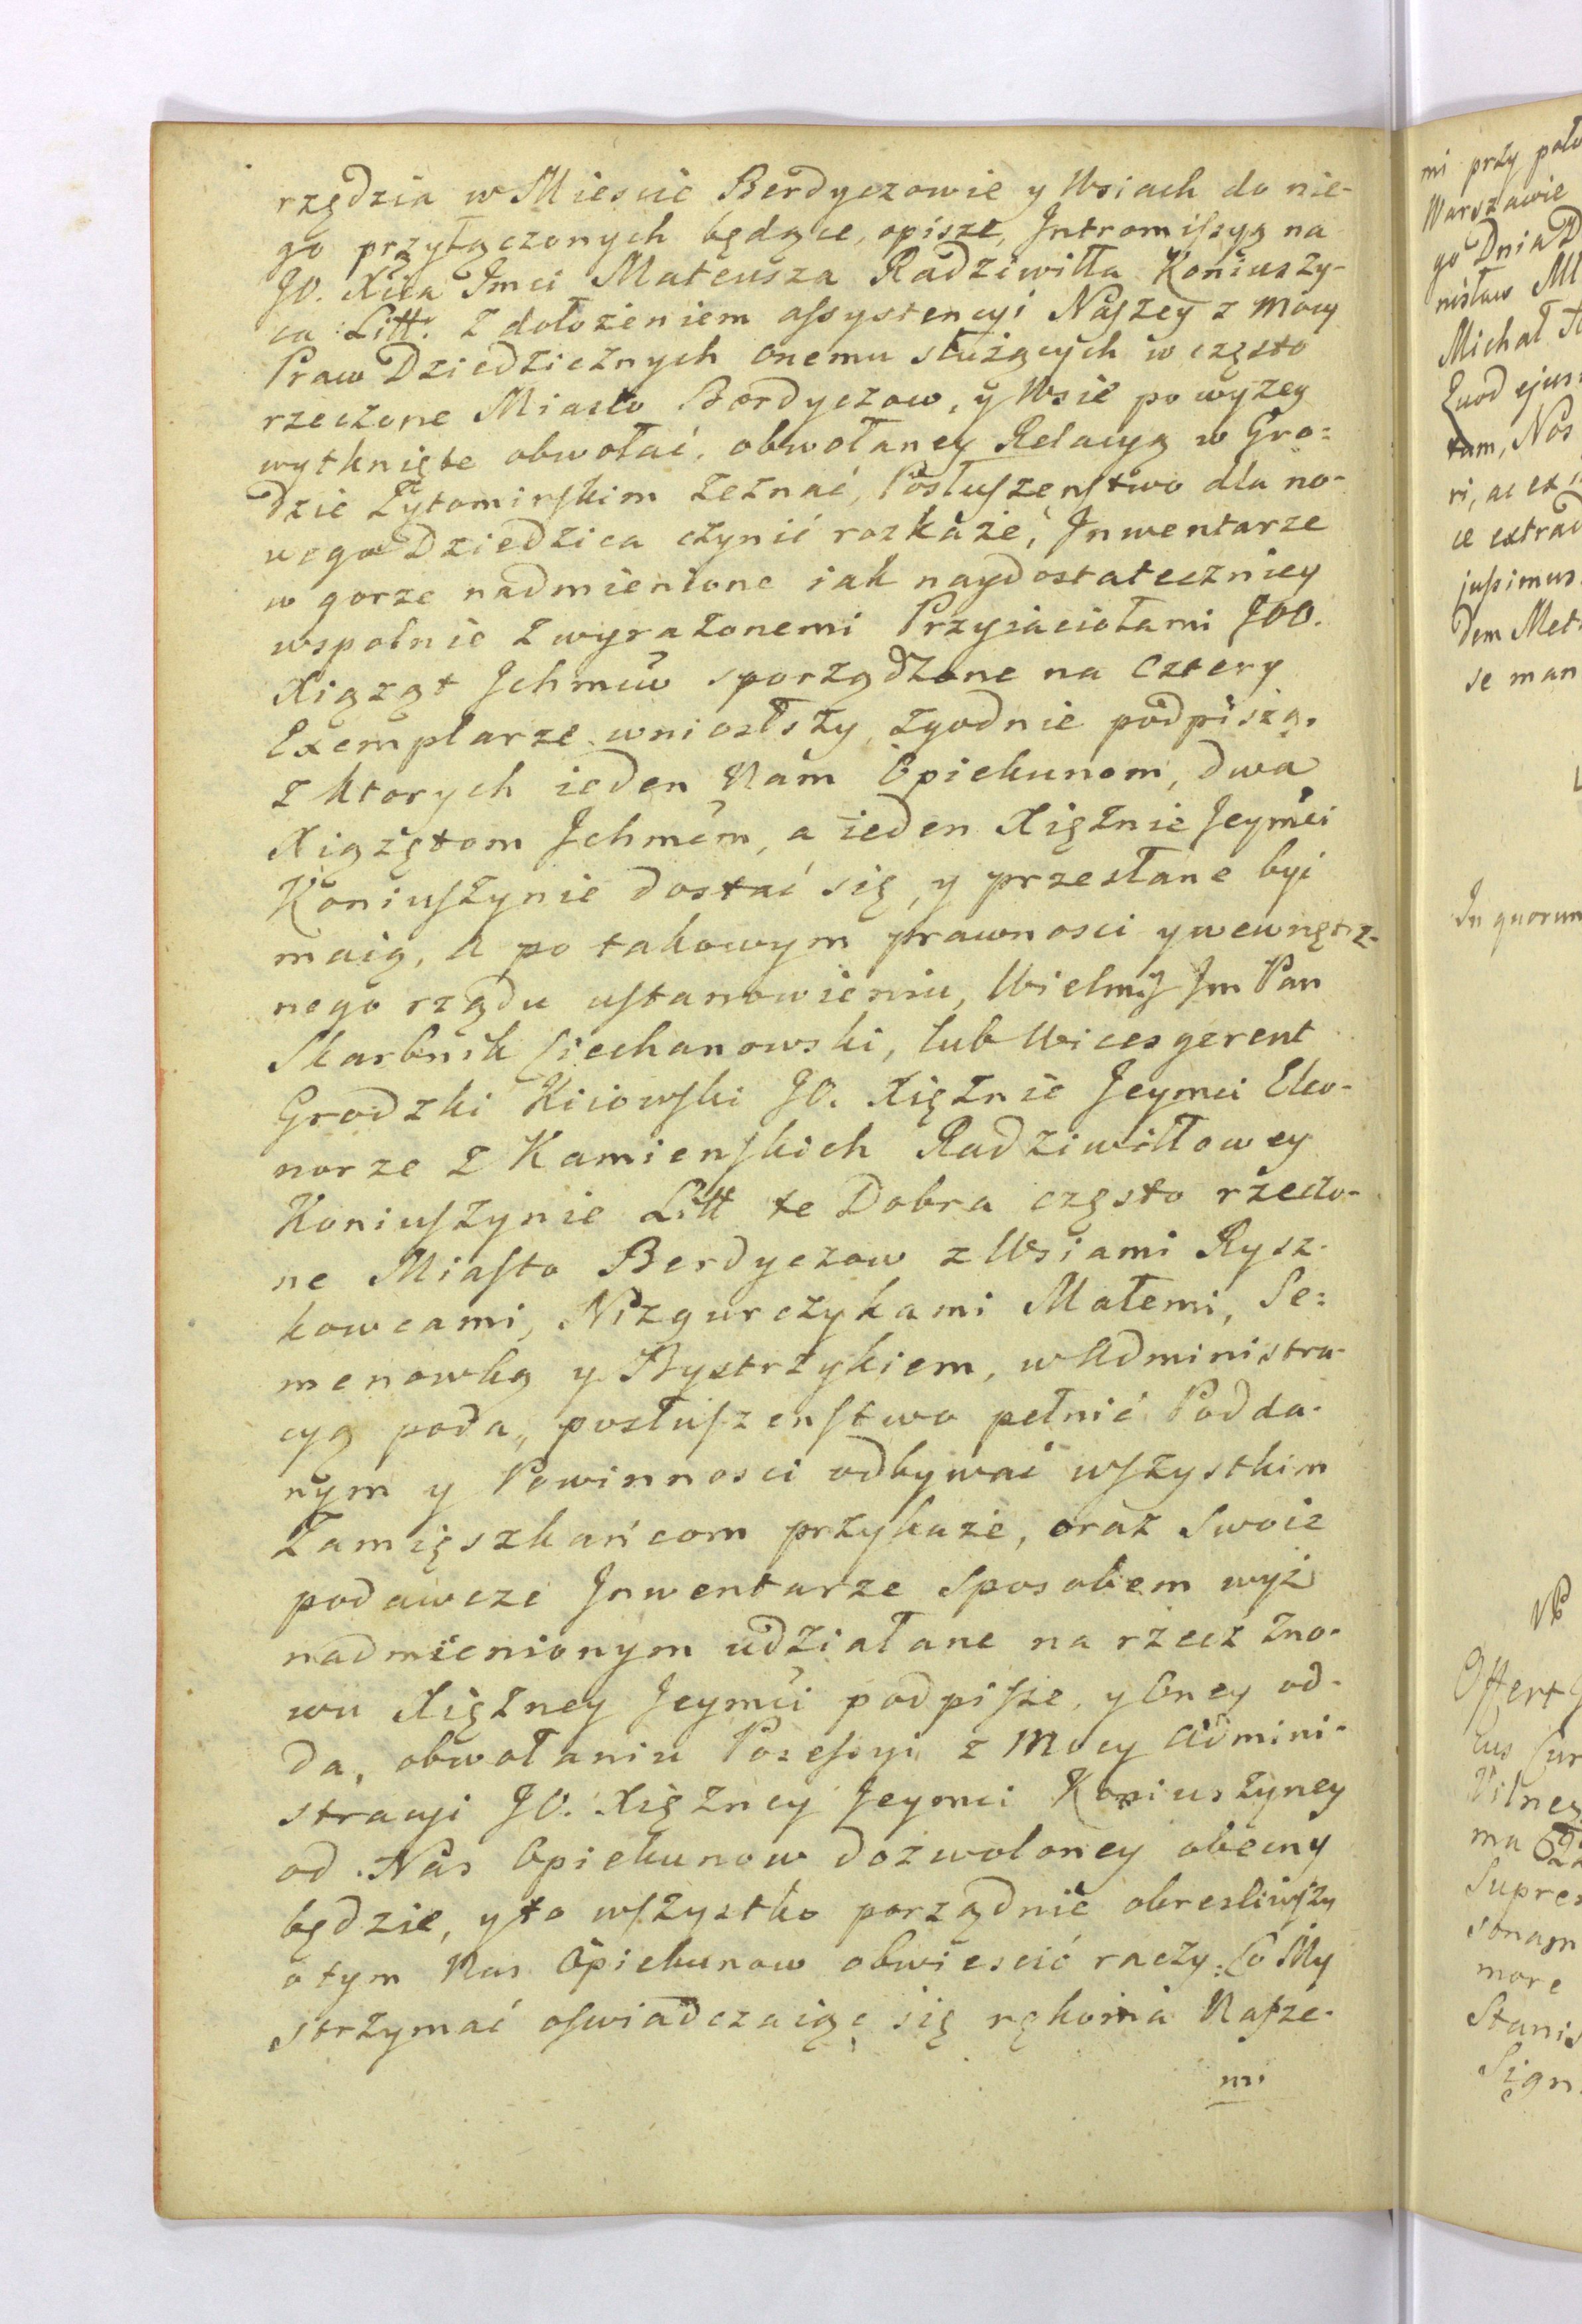 rzędzia w Miescie Berdyczowie y Wsiach do nie-
go przyłączonych będące, opisze, Intromissyą na
JO. Xcia Imci Mateusza Radziwiłła Koniuszy-
ca Litt: z dołożeniem assystencyi Naszey z mocy
Praw Dziedzicznych onemu służących w często
rzeczone Miasto Berdyczow, y Wsie powyzey
wytknięte obwołać, obwołaney Relacyą w Gro=
dzie Żytomirskim zeznać, Posłuszenstwo dla no-
wego Dziedzica czynić rozkaże, Inwentarze
w gorze nadmienione iak naydostateczniey
wspolnie z wyrazonemi Przyiaciołami JOO.
Xiążąt Ichmciow sporządzone na cztery
Exemplarze wniosłszy, zgodnie podpiszą.
z ktorych ieden Nam Opiekunom, dwa
Xiążętom Ichmcm, a ieden Xiężnie Jeymci
Koniuszynie dostać się, y przesłane byi
maią, A po takowym prawnosci y wewnętrz-
nego rządu ustanowieniu, Wielmy Jm Pan
Skarbnik Ciechanowski, lub Wicesgerent
Grodzki Kiiowski JO. Xiężnie Jeymci Eleo-
norze z Kamienskich Radziwiłłowey
Koniuszynie Litt te Dobra często rzeczo-
ne Miasto Berdyczow z Wsiami Rysz-
kowcami, Nizgurczykami Małemi, Se=
menowką y Bystrzykiem, w Administra-
cyą poda, posłuszenstwo pełnić Podda-
nym y Powinnosci odbywać wszystkim
Zamięszkańcom przykaże, oraz Swoie
podawcze Inwentarze Sposobem wyż
nadmienionym udziałane na rzecz zno-
wu Xiężney Jeymci podpisze, y Oney od-
da, obwołaniu Possesyi z Mocy Admini-
stracyi JO. Xiężney Jeymci Koniuszyney
od Nas Opiekunow dozwoloney obecny
będzie, y to wszystko porządnie obresliwszy
o tym Nas Opiekunow obwiescić raczy. Co My
strzymać oswiadczaiąc się rękoma Nasze-
mi
mi przy poło
Warszawie
go Dnia D
nisław Mł
Michał
Quod ejus
tam, Nos
ri, ac ex
ce extrad
jussimus.
dem Met
se man
In quorum
Offert
Cur
Supre
sonam
more
Stanis
Sign.